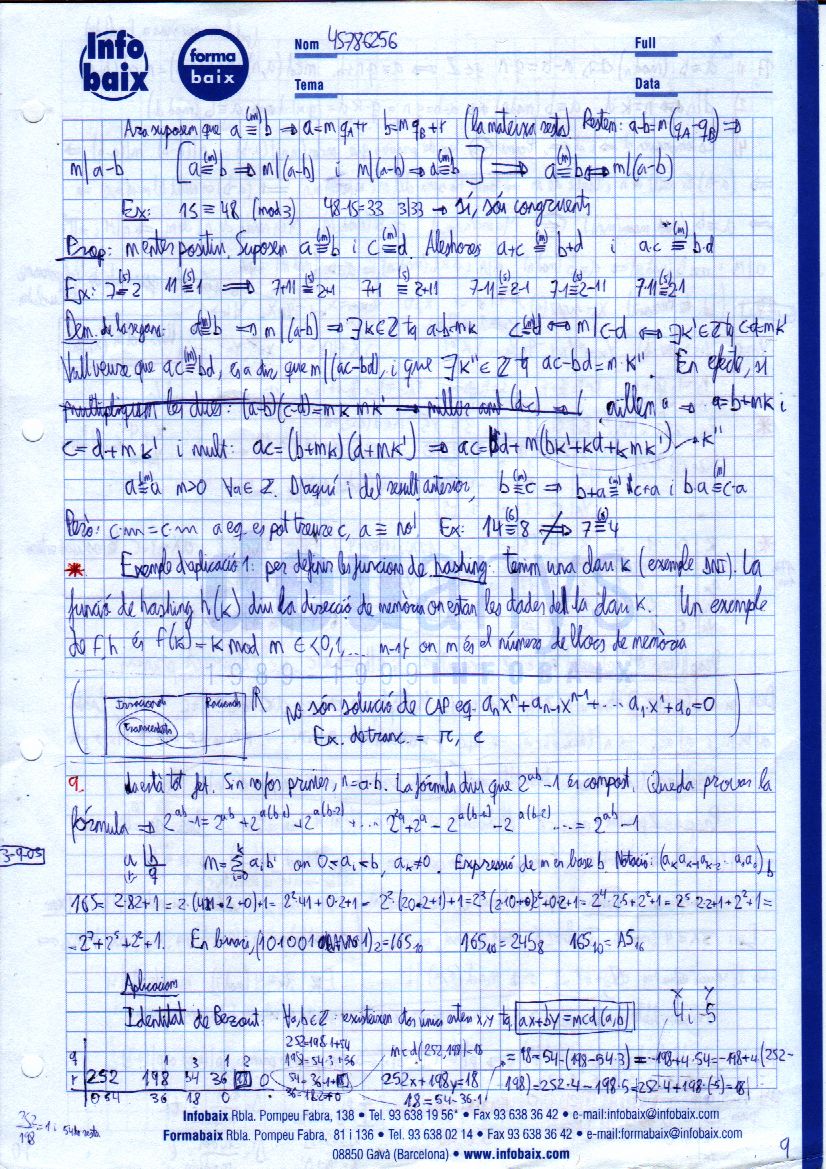 Info baix
forma baix
Nom 45786256
Full
Tema
Data
Ara suposem que a ≡(m) b ⇒ a = m qA + r b = m qB + r (la mateixa resta) Restem: a-b = m(qA - qB) ⇒
m | a-b [a ≡(m) b ⇒ m|(a-b) i m|(a-b) ⇒ a ≡(m) b] ⟹ a ≡(m) b ⇔ m|(a-b)
Ex: 15 ≡ 48 (mod 3) 48-15=33 3|33 → Sí, són congruents
Prop: m enter positiu. Suposem a ≡(m) b i c ≡(m) d. Aleshores a+c ≡(m) b+d i a·c ≡(m) b·d
Ex: 7 ≡(5) 2 11 ≡(5) 1 ⟹ 7+11 ≡(5) 2+1 7+1 ≡(5) 2+11 7-11 ≡(5) 2-1 7-1 ≡(5) 2-11 7·11 ≡(5) 2·1
Dem. de la segona: a ≡(m) b ⇒ m|(a-b) ⇒ ∃k∈Z tq a-b=mk c ≡(m) d ⇔ m|c-d ⇔ ∃k'∈Z tq c-d=mk'
Vull veure que ac ≡(m) bd, és a dir que m|(ac-bd), i que ∃k''∈Z tq ac-bd=m·k''. En efecte, si
multipliquem les dues: (a-b)(c-d)=mk mk' → millor aïllem a ⇒ a=b+mk i
c = d+mk' i mult: ac=(b+mk)(d+mk') ⇒ ac=bd+m(bk'+kd+kmk') → k''
a ≡(m) a m>0 ∀a∈Z. D'aquí i del result anterior, b ≡(m) c ⇒ b+a ≡(m) c+a i b·a ≡(m) c·a
Però: c·m = c·m a eq. es pot treure c, a ≡ no! Ex: 14 ≡(6) 8 ⇏ 7 ≡(6) 4
* Exemple d'aplicació 1: per definir les funcions de hashing: tenim una clau k (exemple DNI). La
funció de hashing h(k) diu la direcció de memòria on estan les dades de la clau k. Un exemple
de f.h és f(k) = k mod m ∈ {0,1,... m-1} on m és el número de llocs de memòria
Irracionals Racionals R no són solució de CAP eq. aₙxⁿ+aₙ₋₁xⁿ⁻¹+...a₁·x¹+a₀=0
Transcendents Ex. de tranc. = π, e
9. Ja està tot fet. Si n no fos primer, n=a·b. La fórmula diu que 2^ab -1 és compost. Queda provar la
fórmula ⇒ 2^ab -1 = 2^ab + 2^a(b-1) + 2^a(b-2) + ... 2^2a + 2^a - 2^a(b-1) - 2^a(b-2) ... = 2^ab - 1
3-9-05
a | b r q m = Σ(i=0..k) aᵢbⁱ on 0≤aᵢ<b, aₖ≠0. Expressió de m en base b. Notació: (aₖ aₖ₋₁ aₖ₋₂ ... a₁ a₀)b
165 = 2·82+1 = 2·(41·2+0)+1 = 2²·41+0·2+1 = 2²·(20·2+1)+1 = 2³(2·10+0)2²+0·2+1 = 2⁴·2·5+2²+1 = 2⁵·2·2+1+2²+1 =
= 2⁷+2⁵+2²+1. En binari, (10100101)₂ = 165₁₀ 165₁₀ = 245₈ 165₁₀ = A5₁₆
Aplicacions
Identitat de Bezout: ∀a,b∈Z: existeixen dos únics enters x,y tq ax+by = mcd(a,b) x y 4 i -5
q 1 3 1 2
r 252 198 54 36 18 0
54 36 18 0
252=198·1+54
198=54·3+36
54=36·1+18
36=18·2+0
mcd(252,198)=18
252x+198y=18
18=54-36·1
= 18 = 54-(198-54·3) = -198+4·54 = -198+4(252-
198) = 252·4-198·5 = 252·4+198·(-5) = 18
252/198 = 1 i 54 de resta
Infobaix Rbla. Pompeu Fabra, 138 • Tel. 93 638 19 56* • Fax 93 638 36 42 • e-mail:infobaix@infobaix.com
Formabaix Rbla. Pompeu Fabra, 81 i 136 • Tel. 93 638 02 14 • Fax 93 638 36 42 • e-mail:formabaix@infobaix.com
08850 Gavà (Barcelona) • www.infobaix.com
9